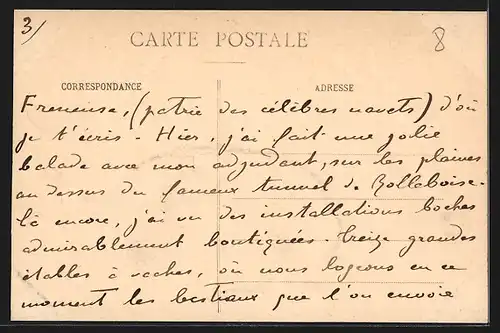 3/
CARTE POSTALE
8
CORRESPONDANCE
ADRESSE
Freneuse, (patrie des célèbres navets) d'où
je t'écris - Hier, j'ai fait une jolie
balade avec mon adjudant, sur les plaines
au dessus du fameux tunnel de Rolleboise.
là encore, j'ai vu des installations boches
admirablement boutiquées. Treize grandes
étables à vaches, où nous logeons en ce
moment les bestiaux que l'on envoie